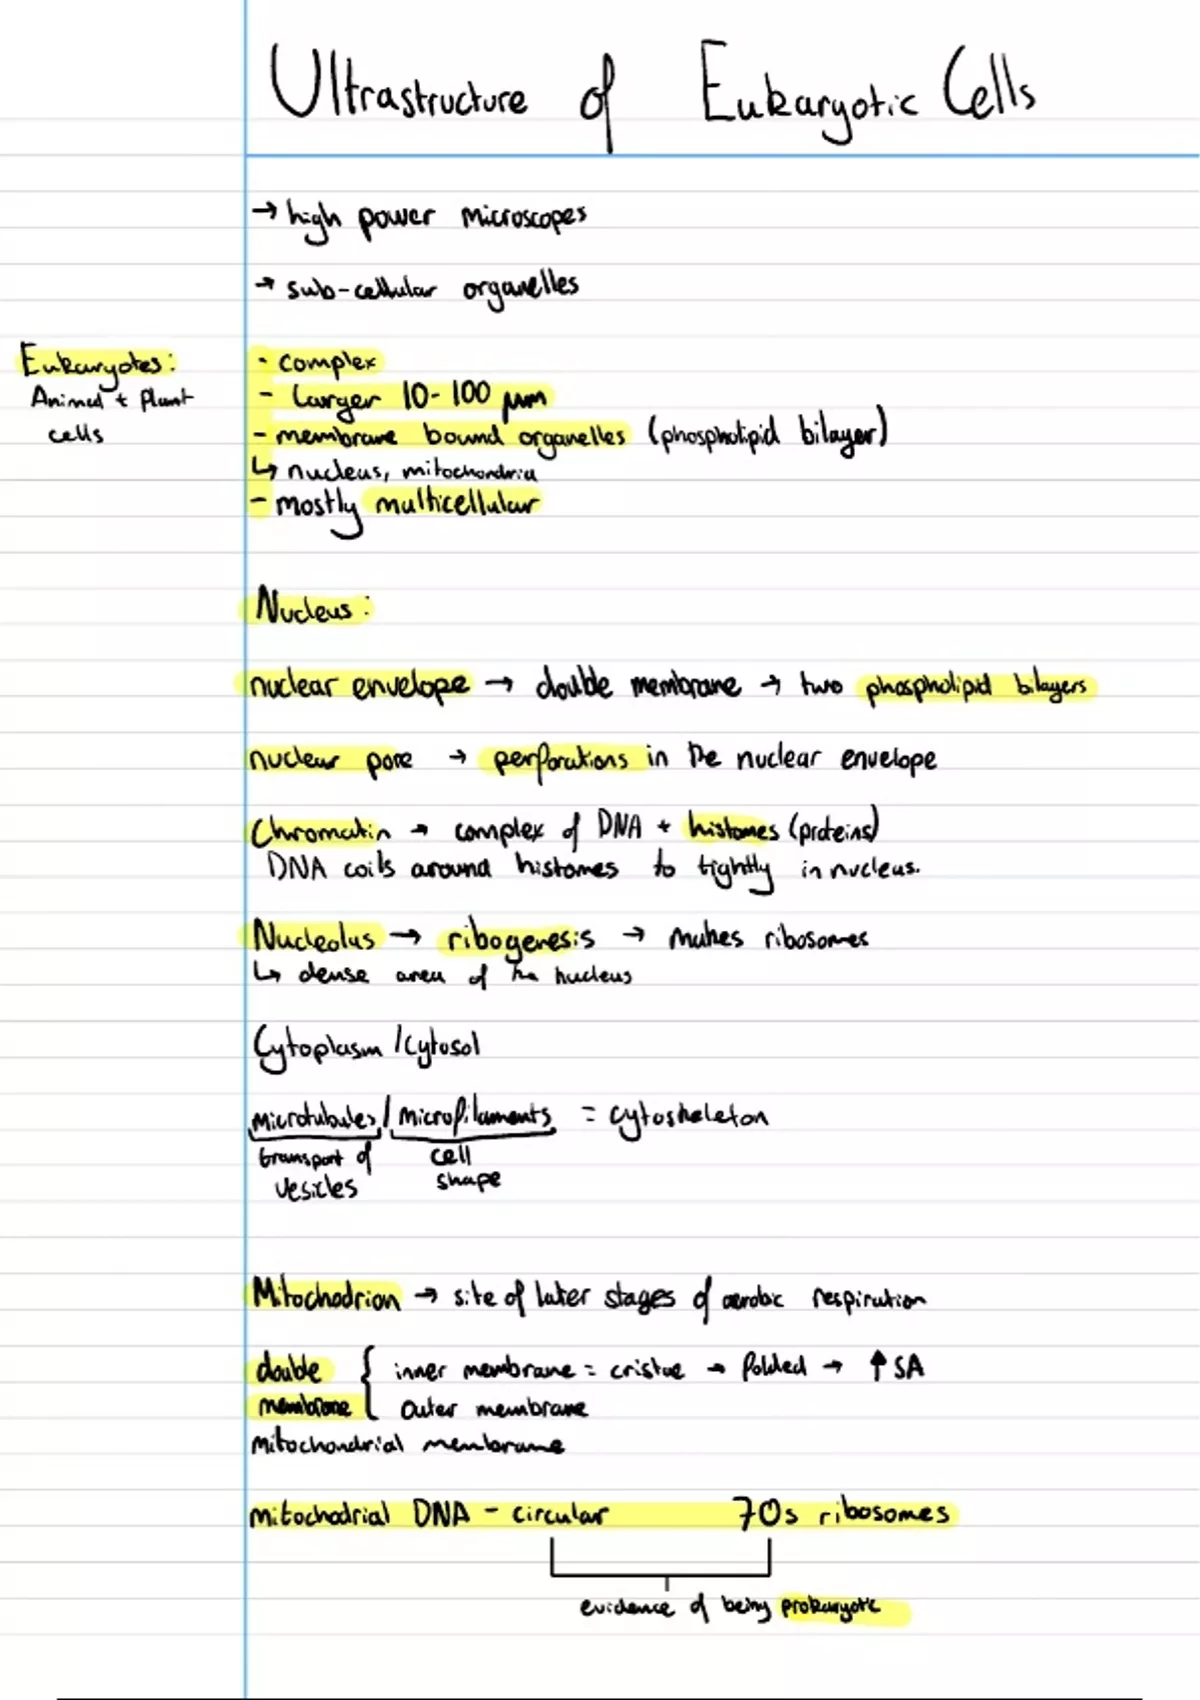 Ultrastructure of Eukaryotic Cells
→ high power microscopes
→ sub-cellular organelles
Eukaryotes:
Animal + Plant
cells
- complex
- Larger 10-100 μm
- membrane bound organelles (phospholipid bilayer)
↳ nucleus, mitochondria
- mostly multicellular
Nucleus:
nuclear envelope → double membrane → two phospholipid bilayers
nuclear pore → perforations in the nuclear envelope
Chromatin → complex of DNA + histones (proteins)
DNA coils around histones to tightly in nucleus.
Nucleolus → ribogenesis → makes ribosomes
↳ dense area of the nucleus
Cytoplasm / Cytosol
Microtubules / microfilaments = cytoskeleton
transport of vesicles
cell shape
Mitochodrion → site of later stages of aerobic respiration
double membrane { inner membrane = cristae → folded → ↑ SA
outer membrane
Mitochondrial membrane
mitochodrial DNA - circular 70s ribosomes
evidence of being prokaryotic